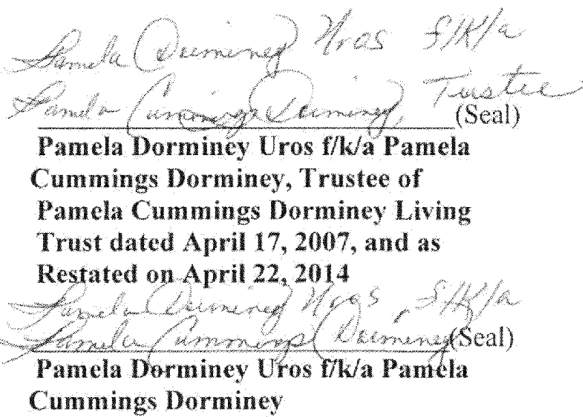 Pamela Dorminey Uros f/k/a
Pamela Cummings Dorminey, Trustee
(Seal)
Pamela Dorminey Uros f/k/a Pamela
Cummings Dorminey, Trustee of
Pamela Cummings Dorminey Living
Trust dated April 17, 2007, and as
Restated on April 22, 2014
Pamela Dorminey Uros, f/k/a
Pamela Cummings Dorminey (Seal)
Pamela Dorminey Uros f/k/a Pamela
Cummings Dorminey